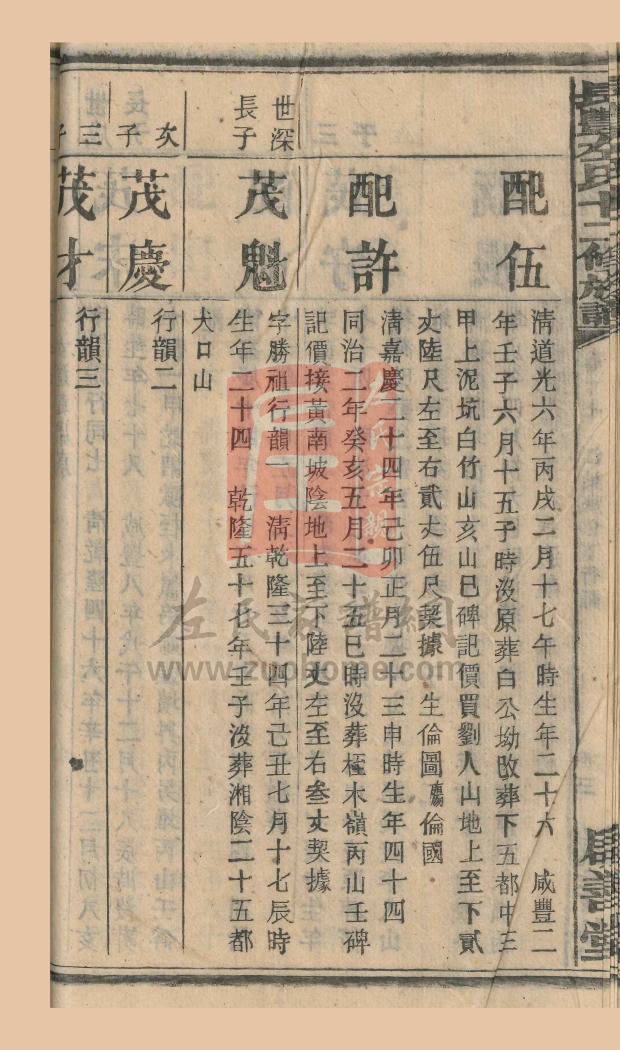 配伍
清道光六年丙戌二月十七午時生年二十六 咸豐二
年壬子六月十五子時沒原葬白公坳改葬下五都中三
甲上泥坑白竹山亥山巳碑記價買劉人山地上至下貳
丈陸尺左至右貳丈伍尺契據 生倫圖殤倫國
配許
清嘉慶二十四年己卯正月二十三申時生年四十四
同治二年癸亥五月二十五巳時沒葬極木嶺丙山壬碑
記價接黃南坡陰地上至下陸丈左至右叁丈契據
世深
長子
茂魁
字勝祖行韻一 清乾隆三十四年己丑七月十七辰時
生年二十四 乾隆五十七年壬子沒葬湘陰二十五都
犬口山
次子
茂慶
行韻二
三子
茂才
行韻三
左氏宗親
左氏家譜網
www.zuohome.com